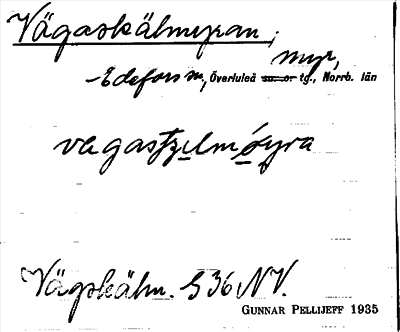 Vägaskälmyran,
myr,
Edefors sn, Överluleå tg., Norrb. län
vägastzelmöyra
Vägskälm. S 36 NV.
GUNNAR PELLIJEFF 1935